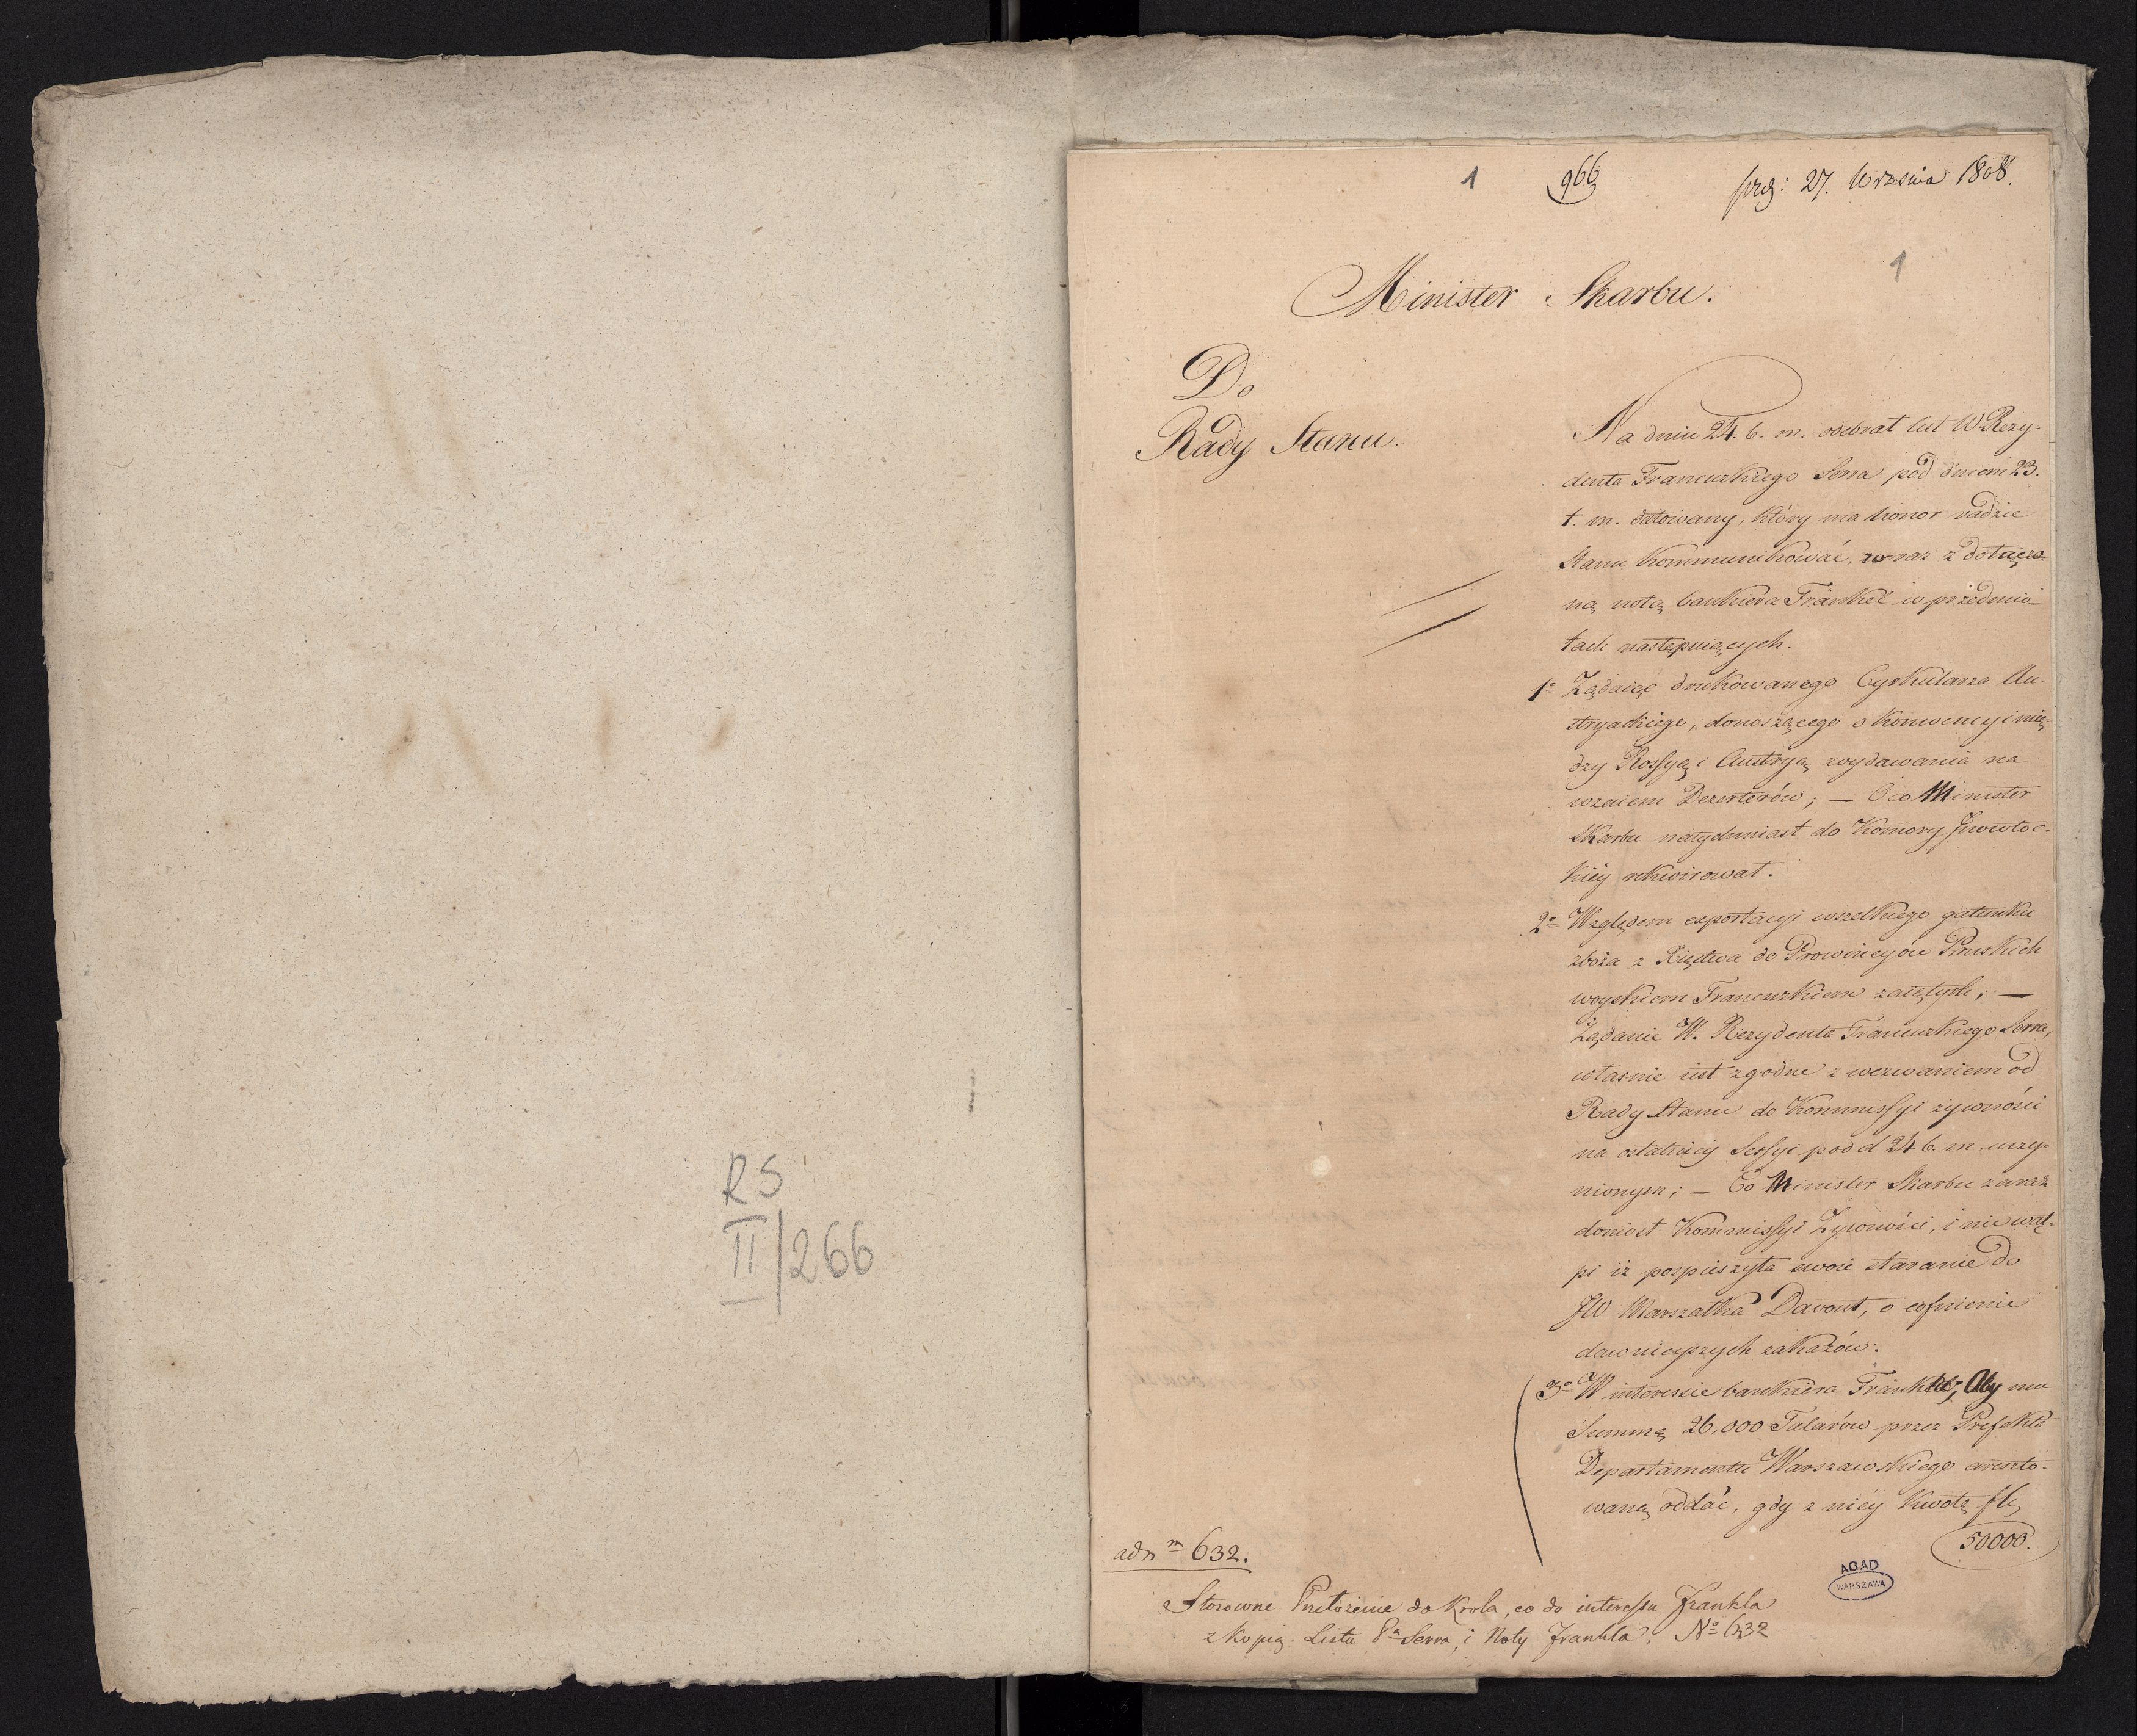 RS
II/266
1
966
prez: 27. Września 1808.
1
Minister Skarbu.
Do
Rady Stanu.
Na dniu 24. b. m. odebrał list W Rezy-
denta Francuzkiego Serra pod dniem 23.
t. m. datowany, który ma honor radzie
Stanu kommunikować, wraz z dołączo-
ną notą bankiera Fränkel w przedmio-
tach następuiących.
1o Żądaiąc drukowanego Cyrkularza Au-
stryackiego, donoszącego o Konwencyi mię-
dzy Rossyą i Austryą wydawania na
wzaiem Dezerterów; — O co Minister
Skarbu natychmiast do Komory Inowłoc-
kiéy rekwirował.
2o Względem exportacyi wszelkiego gatunku
zboża z Xięstwa do Prowincyów Pruskich
woyskiem Francuzkiem zaiętych; —
Żądanie W. Rezydenta Francuzkiego Serra,
własnie iest zgodne z wezwaniem od
Rady Stanu do Kommissyi żywności
na ostatniey Sessyi pod d 24 b. m. uczy-
nionym; — Co Minister Skarbu zaraz
doniosł Kommissyi Żywności, i nie wąt-
pi iż pospieszyła swoie staranie do
JW Marszałka Davout, o cofnienie
dawnieyszych zakazów.
3o W interessie bankiera Fränkel; Aby mu
Summę 26,000 Talarów przez Prefekta
Departamentu Warszawskiego areszto-
waną oddać, gdy z niéy kwotę fl.
50000.
ad n m 632.
Stosowne Przełożenie do Krola, co do interessu Frankla
z kopią Listu Pa Serra, i Noty Frankla. No 632
AGAD
WARSZAWA